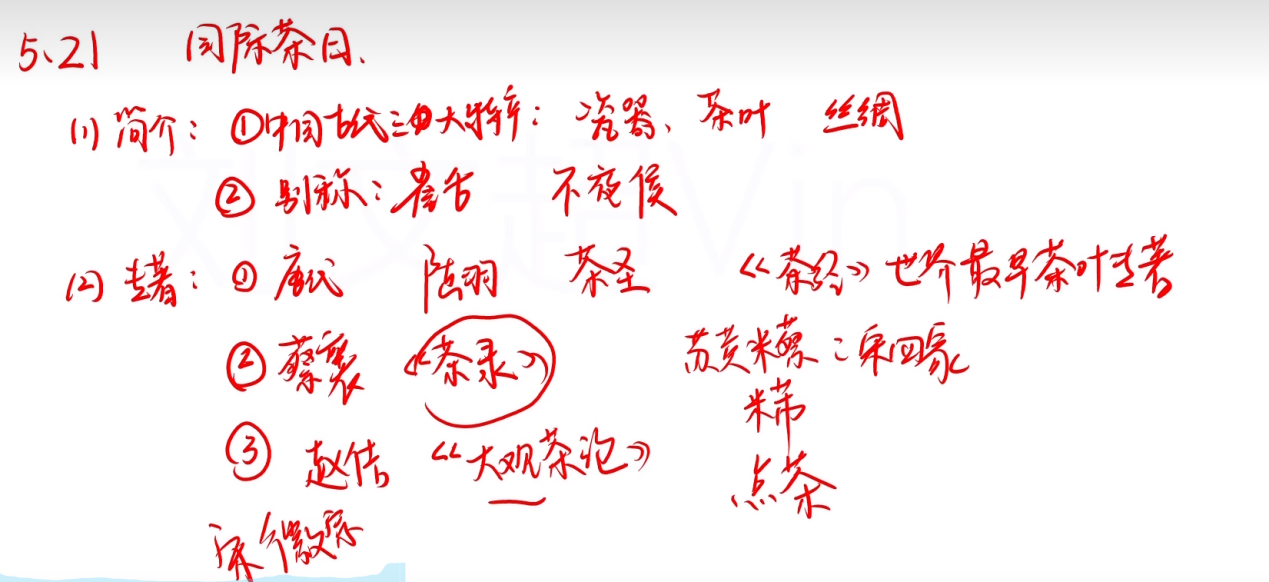 5.21 国际茶日.
(1) 简介: ①中国古代三大特产: 瓷器、茶叶 丝绸
② 别称: 雀舌 不夜侯
(2) 专著: ① 唐代 陆羽 茶圣 《茶经》世界最早茶叶专著
② 蔡襄 《茶录》 苏黄米蔡:宋四家
米芾
③ 赵佶 《大观茶论》 点茶
宋徽宗